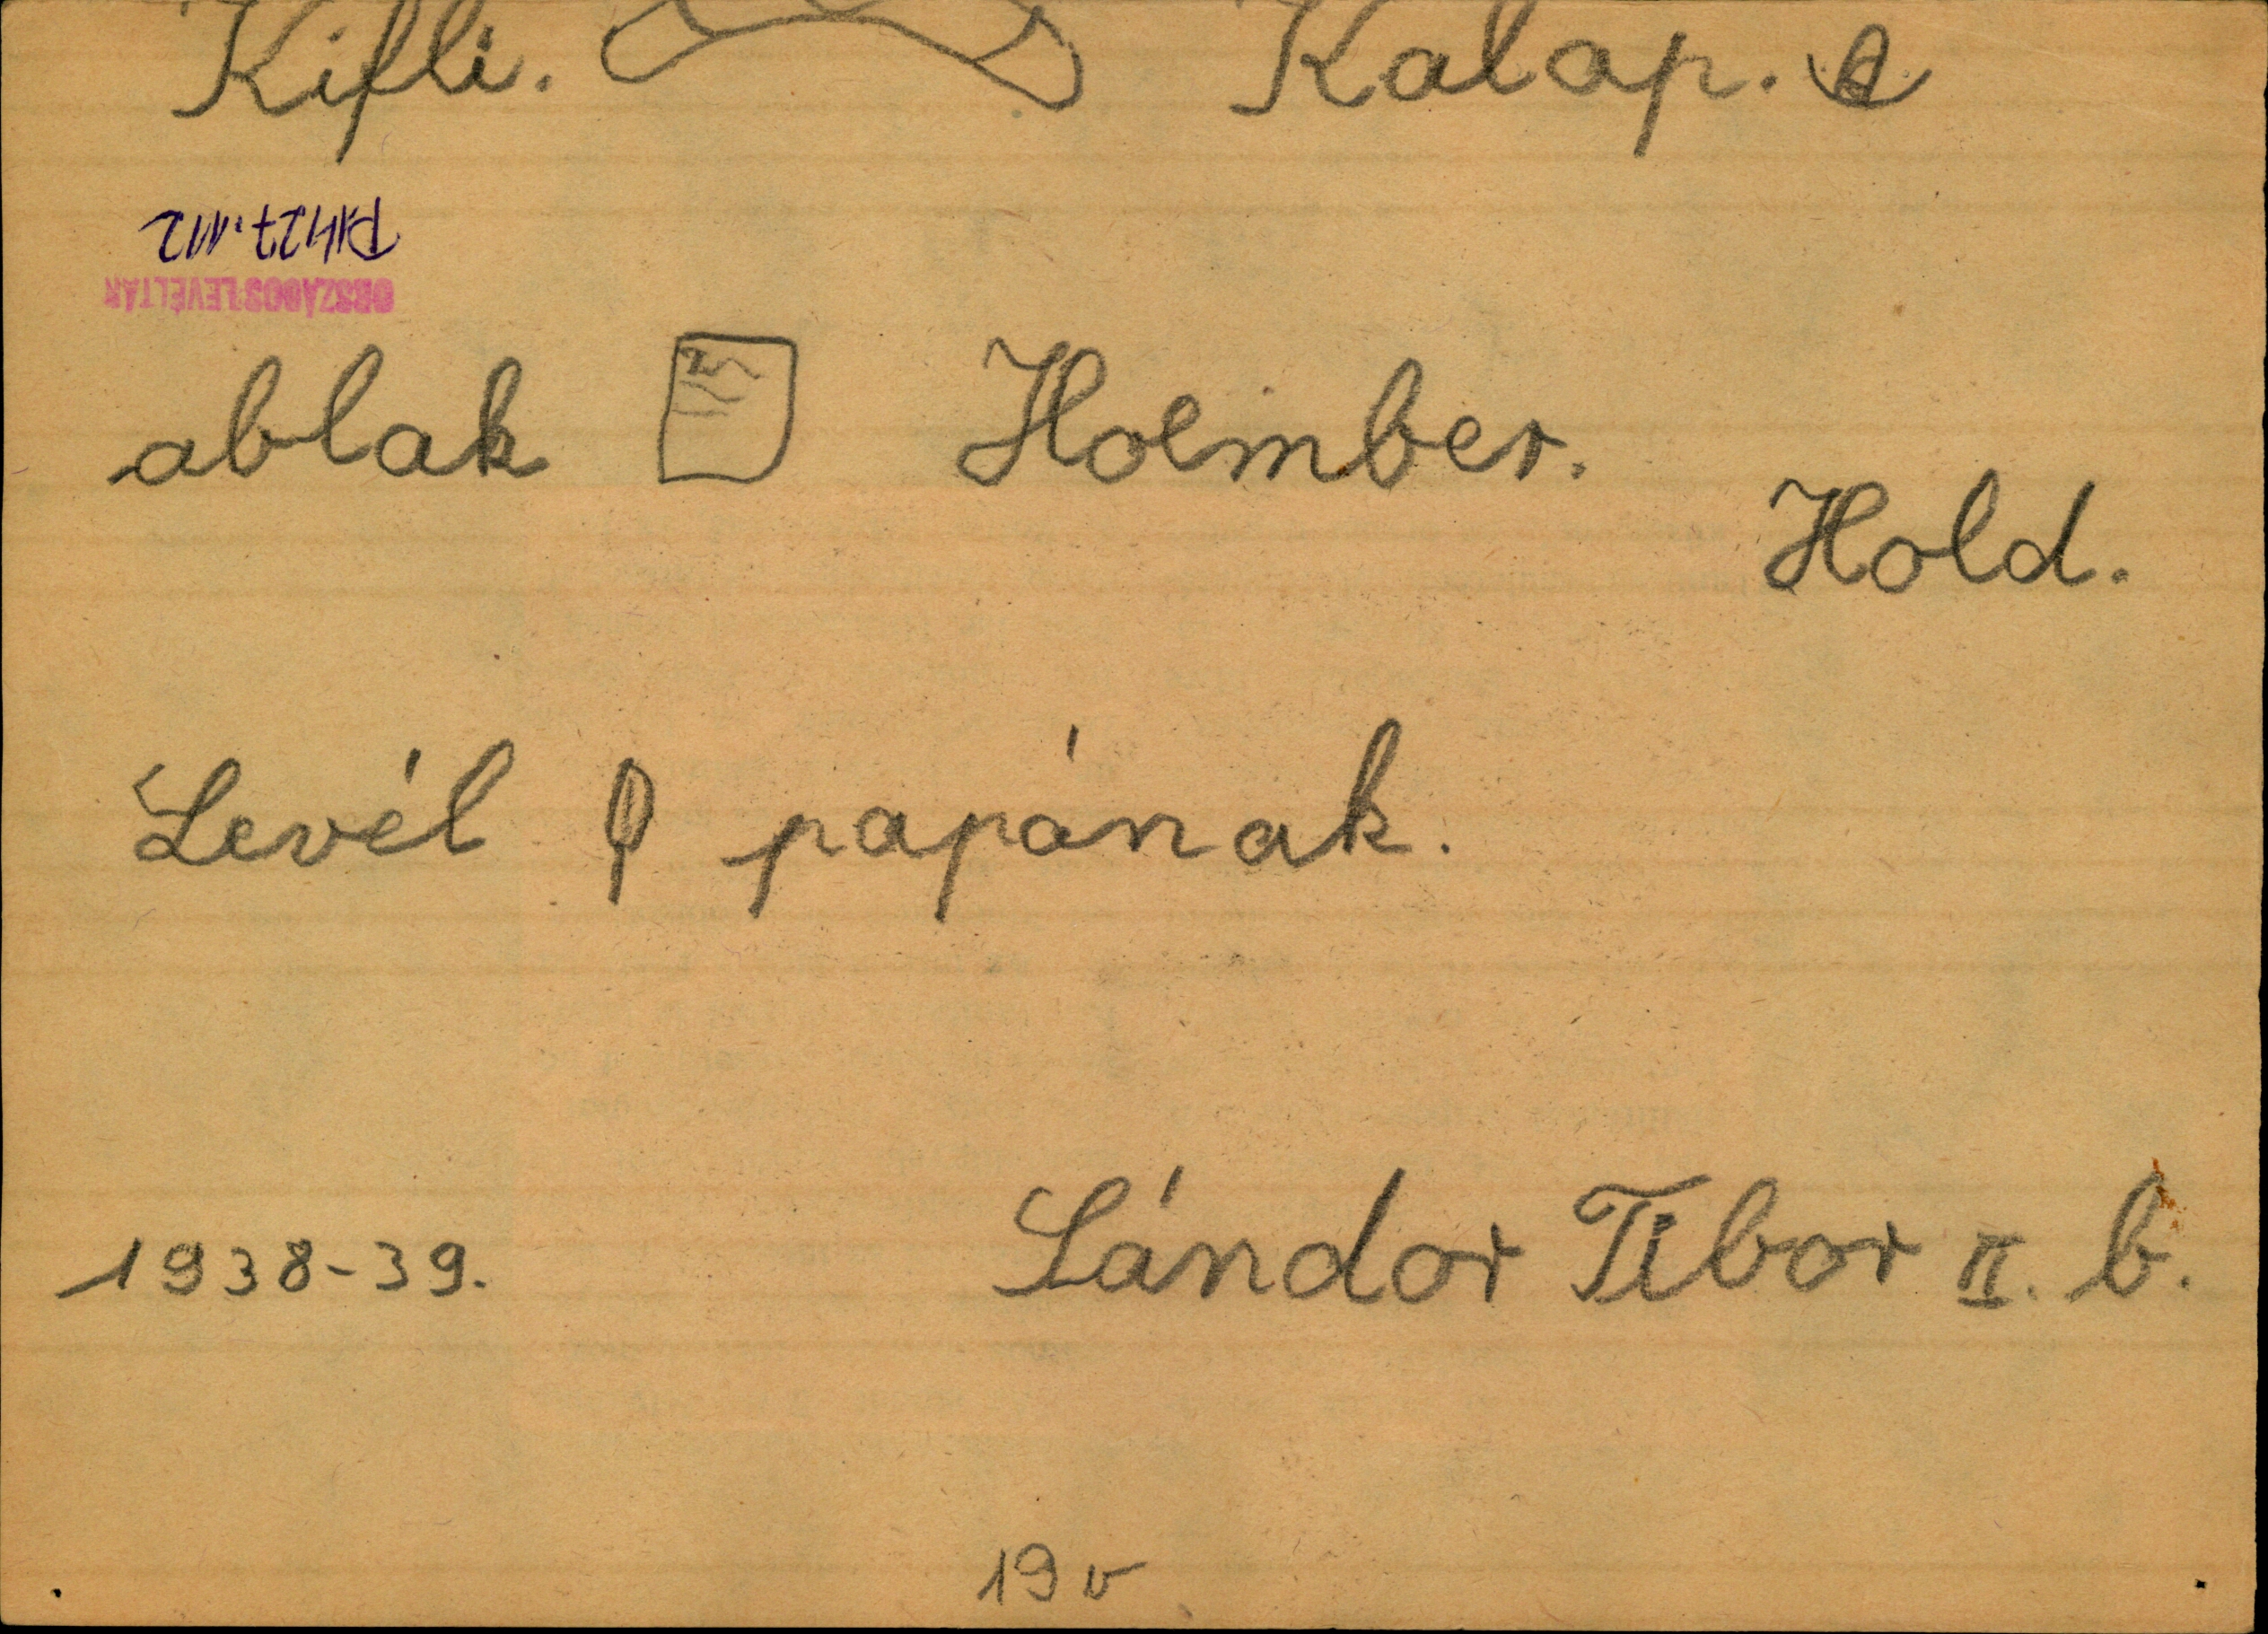 Kifli. Kalap.
P1427.112
ORSZÁGOS LEVÉLTÁR
ablak Hoember.
Hold.
Levél papának.
1938-39. Sándor Tibor II. b.
19 v